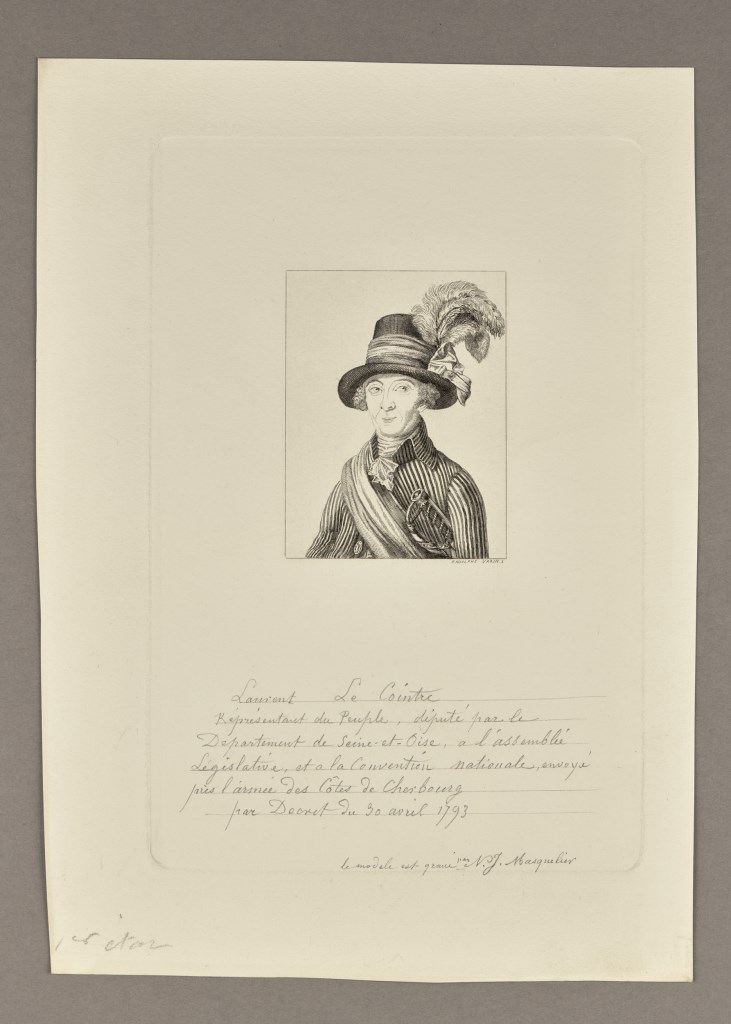 Laurent Le Cointre
Représentant du Peuple, député par le
Département de Seine-et-Oise, a l'assemblée
Législative, et a la Convention nationale, envoyé
près l'armée des Côtes de Cherbourg
par Decret du 30 avril 1793
le modele est gravé par N. J. Masquelier
1er état